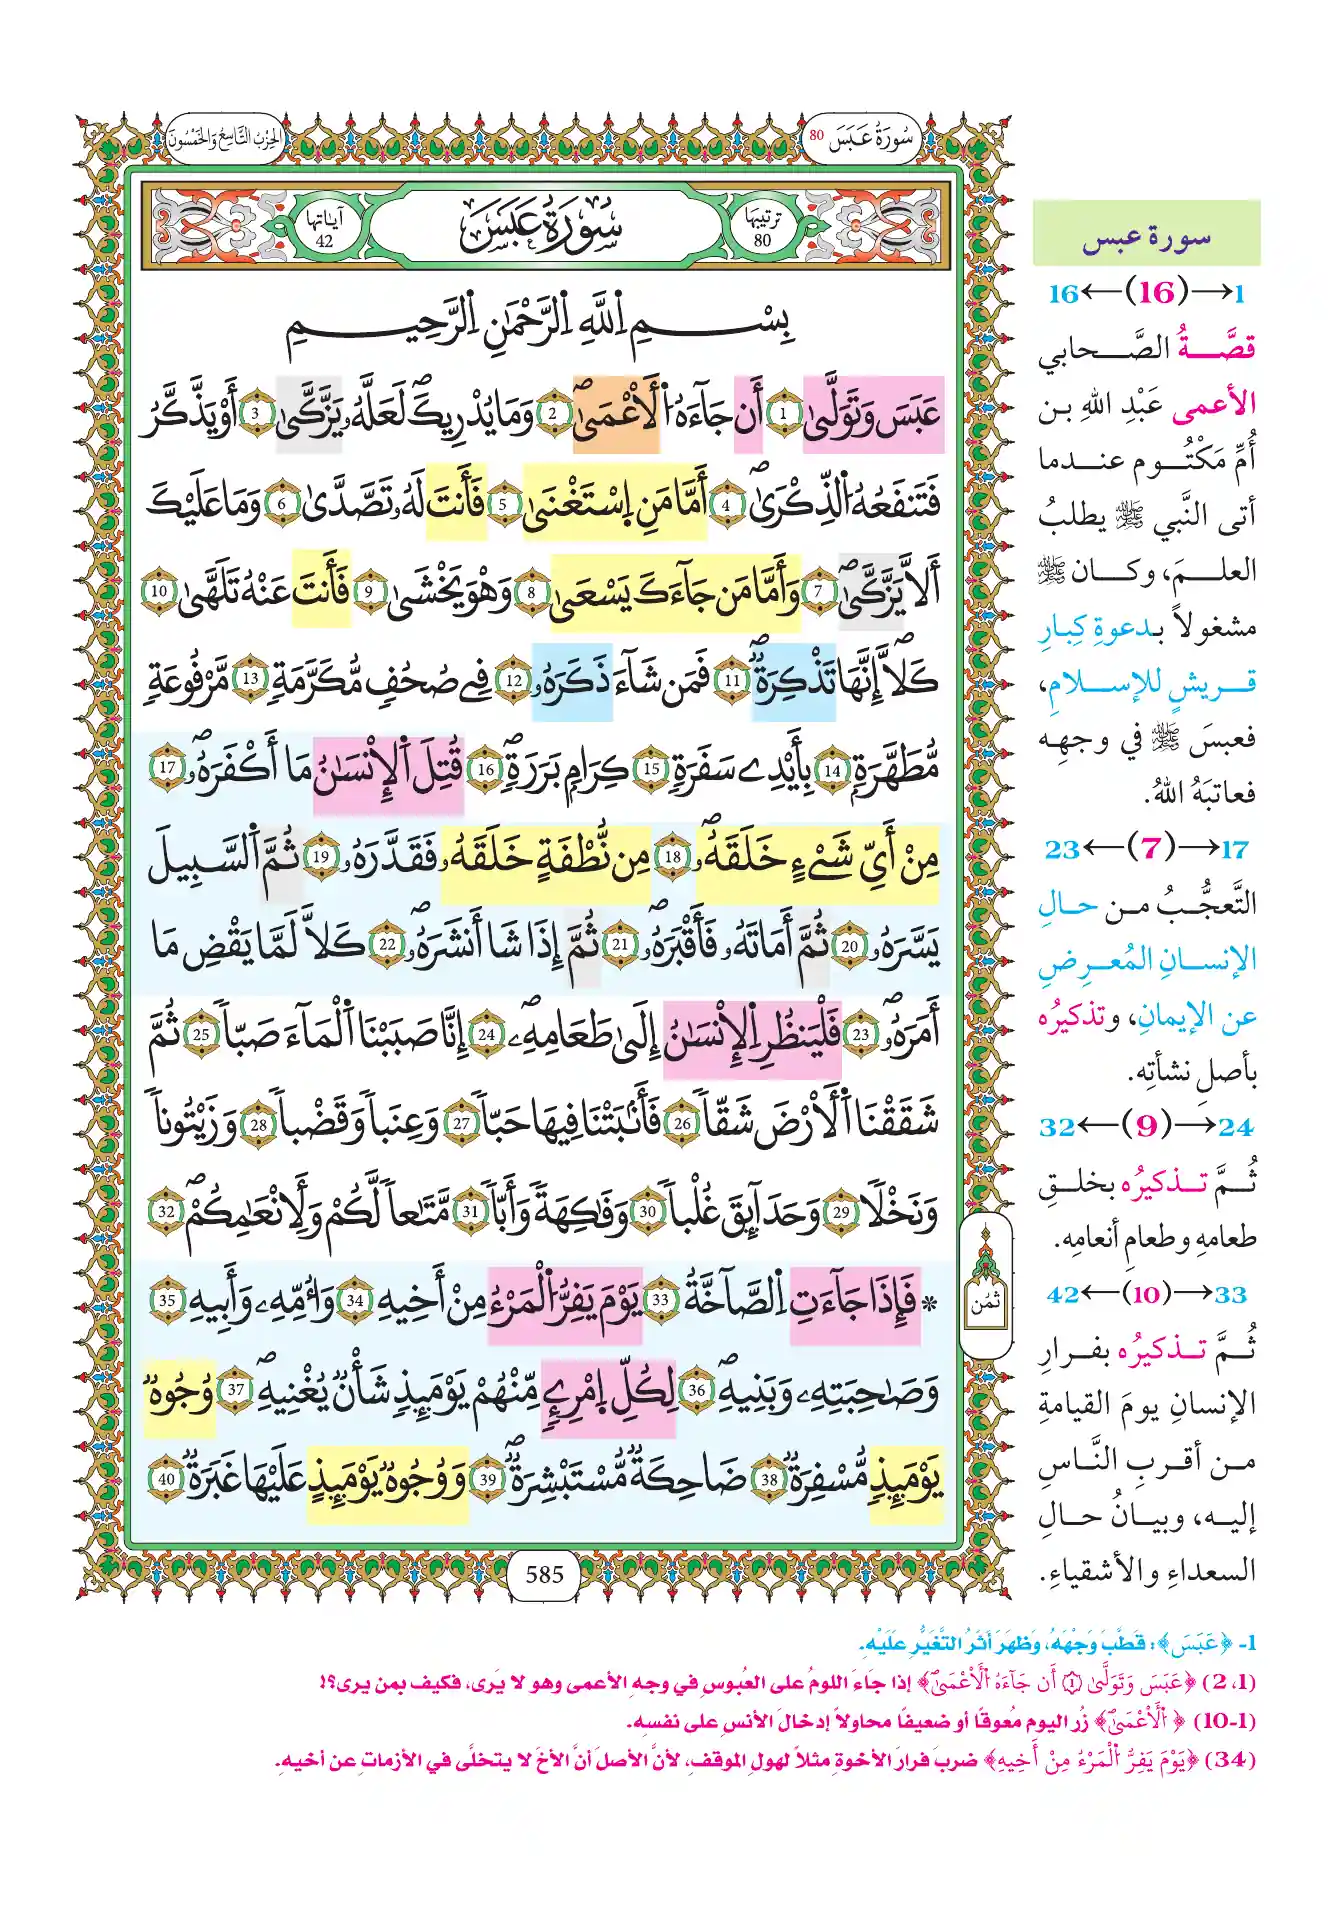 سُورَةُ عَبَسَ 80
الحِزْبُ التَّاسِعُ وَالخَمْسُونَ
ترتيبها 80
سُورَةُ عَبَسَ
آياتها 42
بِسْمِ اِللَّهِ اِلرَّحْمَٰنِ اِلرَّحِيمِ
عَبَسَ وَتَوَلَّىٰ 1 أَن جَآءَهُ اُلَاعْمَىٰ 2 وَمَا يُدْرِيكَ لَعَلَّهُۥ يَزَّكَّىٰ 3 أَوْ يَذَّكَّرُ
فَتَنفَعُهُ اُلذِّكْرَىٰ 4 أَمَّا مَنِ اِسْتَغْنَىٰ 5 فَأَنتَ لَهُۥ تَصَّدَّىٰ 6 وَمَا عَلَيْكَ
أَلَّا يَزَّكَّىٰ 7 وَأَمَّا مَن جَآءَكَ يَسْعَىٰ 8 وَهْوَ يَخْشَىٰ 9 فَأَنتَ عَنْهُ تَلَهَّىٰ 10
كَلَّآ إِنَّهَا تَذْكِرَةٌ 11 فَمَن شَآءَ ذَكَرَهُۥ 12 فِے صُحُفٍ مُّكَرَّمَةٍ 13 مَّرْفُوعَةٍ
مُّطَهَّرَةٍ 14 بِأَيْدِے سَفَرَةٍ 15 كِرَامٍ بَرَرَةٍ 16 قُتِلَ اَلْإِنسَٰنُ مَا أَكْفَرَهُۥ 17
مِنْ أَيِّ شَےْءٍ خَلَقَهُۥ 18 مِن نُّطْفَةٍ خَلَقَهُۥ فَقَدَّرَهُۥ 19 ثُمَّ اَلسَّبِيلَ
يَسَّرَهُۥ 20 ثُمَّ أَمَاتَهُۥ فَأَقْبَرَهُۥ 21 ثُمَّ إِذَا شَا أَنشَرَهُۥ 22 كَلَّا لَمَّا يَقْضِ مَا
أَمَرَهُۥ 23 فَلْيَنظُرِ اِلْإِنسَٰنُ إِلَىٰ طَعَامِهِۦ 24 إِنَّا صَبَبْنَا اَلْمَآءَ صَبّاً 25 ثُمَّ
شَقَقْنَا اَلَارْضَ شَقّاً 26 فَأَنۢبَتْنَا فِيهَا حَبّاً 27 وَعِنَباً وَقَضْباً 28 وَزَيْتُوناً
وَنَخْلًا 29 وَحَدَآئِقَ غُلْباً 30 وَفَٰكِهَةً وَأَبّاً 31 مَّتَٰعاً لَّكُمْ وَلِأَنْعَٰمِكُمْ 32
* فَإِذَا جَآءَتِ اِلصَّآخَّةُ 33 يَوْمَ يَفِرُّ اُلْمَرْءُ مِنْ أَخِيهِ 34 وَأُمِّهِۦ وَأَبِيهِ 35
وَصَٰحِبَتِهِۦ وَبَنِيهِ 36 لِكُلِّ اِمْرِےٍٕ مِّنْهُمْ يَوْمَئِذٍ شَأْنٌ يُغْنِيهِ 37 وُجُوهٌ
يَوْمَئِذٍ مُّسْفِرَةٌ 38 ضَاحِكَةٌ مُّسْتَبْشِرَةٌ 39 وَوُجُوهٌ يَوْمَئِذٍ عَلَيْهَا غَبَرَةٌ 40
ثمن
585
سورة عبس
1→(16)←16
قصَّةُ الصَّحابي
الأعمى عَبْدِ اللهِ بن
أُمِّ مَكْتُوم عندما
أتى النَّبي ﷺ يطلبُ
العلمَ، وكان ﷺ
مشغولاً بدعوةِ كِبارِ
قريشٍ للإسلامِ،
فعبسَ ﷺ في وجهِه
فعاتبَهُ اللهُ.
17→(7)←23
التَّعجُّبُ من حالِ
الإنسانِ المُعرِضِ
عن الإيمانِ، وتذكيرُه
بأصلِ نشأتِه.
24→(9)←32
ثُمَّ تذكيرُه بخلقِ
طعامهِ وطعامِ أنعامِه.
33→(10)←42
ثُمَّ تذكيرُه بفرارِ
الإنسانِ يومَ القيامةِ
من أقربِ النَّاسِ
إليه، وبيانُ حالِ
السعداءِ والأشقياءِ.
1- ﴿عَبَسَ﴾: قَطَّبَ وَجْهَهُ، وَظهَرَ أَثَرُ التَّغَيُّرِ عَلَيْهِ.
(1، 2) ﴿عَبَسَ وَتَوَلَّىٰ ١ أَن جَآءَهُ اُلَاعْمَىٰ﴾ إذا جَاءَ اللومُ على العُبوسِ في وجهِ الأعمى وهو لا يَرى، فكيف بمن يرى؟!
(1-10) ﴿اُلَاعْمَىٰ﴾ زُر اليوم مُعوقًا أو ضعيفًا محاولاً إدخالَ الأنس على نفسه.
(34) ﴿يَوْمَ يَفِرُّ اُلْمَرْءُ مِنْ أَخِيهِ﴾ ضربَ فرارَ الأخوةِ مثلاً لهولِ الموقفِ، لأنَّ الأصلَ أنَّ الأخَ لا يتخلَّى في الأزماتِ عن أخيهِ.